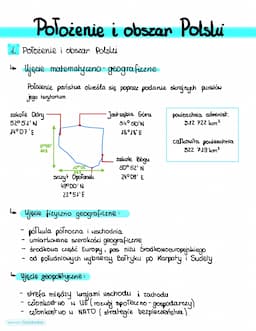 Położenie i obszar Polski
1. Położenie i obszar Polski
↳ Ujęcie matematyczno-geograficzne
Położenie państwa określa się poprzez podanie skrajnych punktów
jego terytorium
zakole Odry
52°51'N
14°07'E
Jastrzębia Góra
54°50'N
18°18'E
powierzchnia administ.:
312 722 km²
całkowita powierzchnia
322 719 km²
zakole Bugu
50°52'N
24°09'E
szczyt Opołonek
49°00'N
22°51'E
↳ Ujęcie fizyczno geograficzne:
- półkula północna i wschodnia
- umiarkowane szerokości geograficzne
- środkowa część Europy, pas niżu środkowoeuropejskiego
- od południowych wybrzeży Bałtyku po Karpaty i Sudety
↳ Ujęcie geopolityczne:
- strefa między krajami wschodu i zachodu
- członkostwo w UE (rozwój społeczno-gospodarczy)
- członkostwo w NATO (strategie bezpieczeństwa)